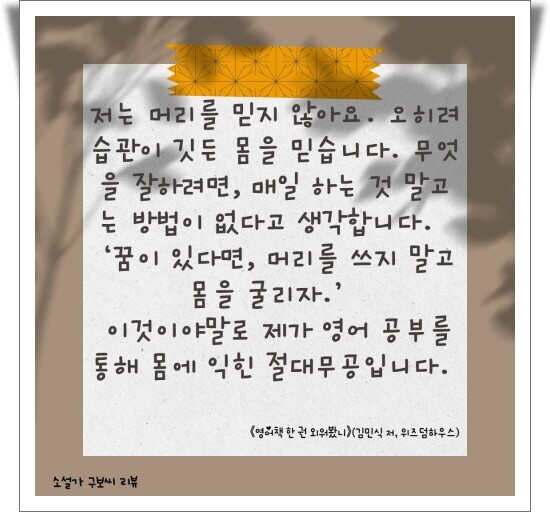 저는 머리를 믿지 않아요. 오히려
습관이 깃든 몸을 믿습니다. 무엇
을 잘하려면, 매일 하는 것 말고
는 방법이 없다고 생각합니다.
‘꿈이 있다면, 머리를 쓰지 말고
몸을 굴리자.’
이것이야말로 제가 영어 공부를
통해 몸에 익힌 절대무공입니다.
《영어책 한 권 외워봤니》(김민식 저, 위즈덤하우스)
소설가 구보씨 리뷰